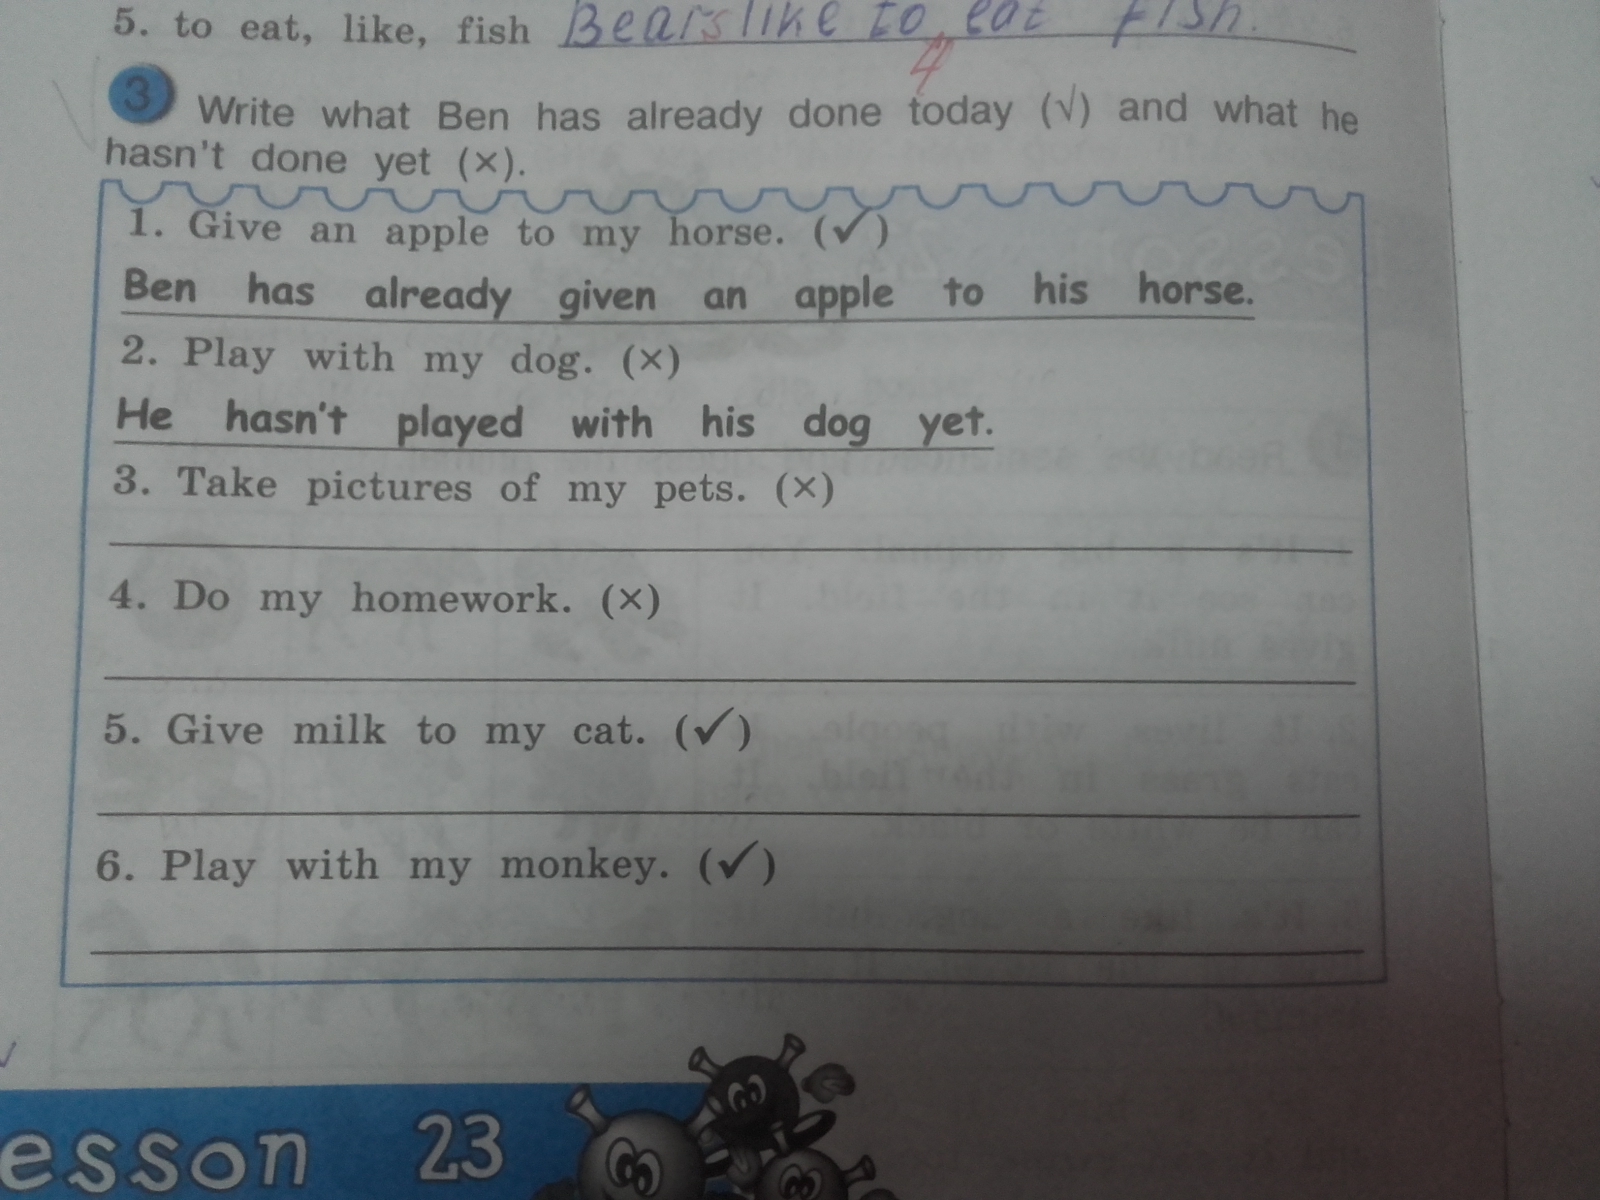 5. to eat, like, fish Bears like to eat fish.
4
3 Write what Ben has already done today (√) and what he
hasn't done yet (×).
1. Give an apple to my horse. (✓)
Ben has already given an apple to his horse.
2. Play with my dog. (×)
He hasn't played with his dog yet.
3. Take pictures of my pets. (×)
4. Do my homework. (×)
5. Give milk to my cat. (✓)
6. Play with my monkey. (✓)
esson 23